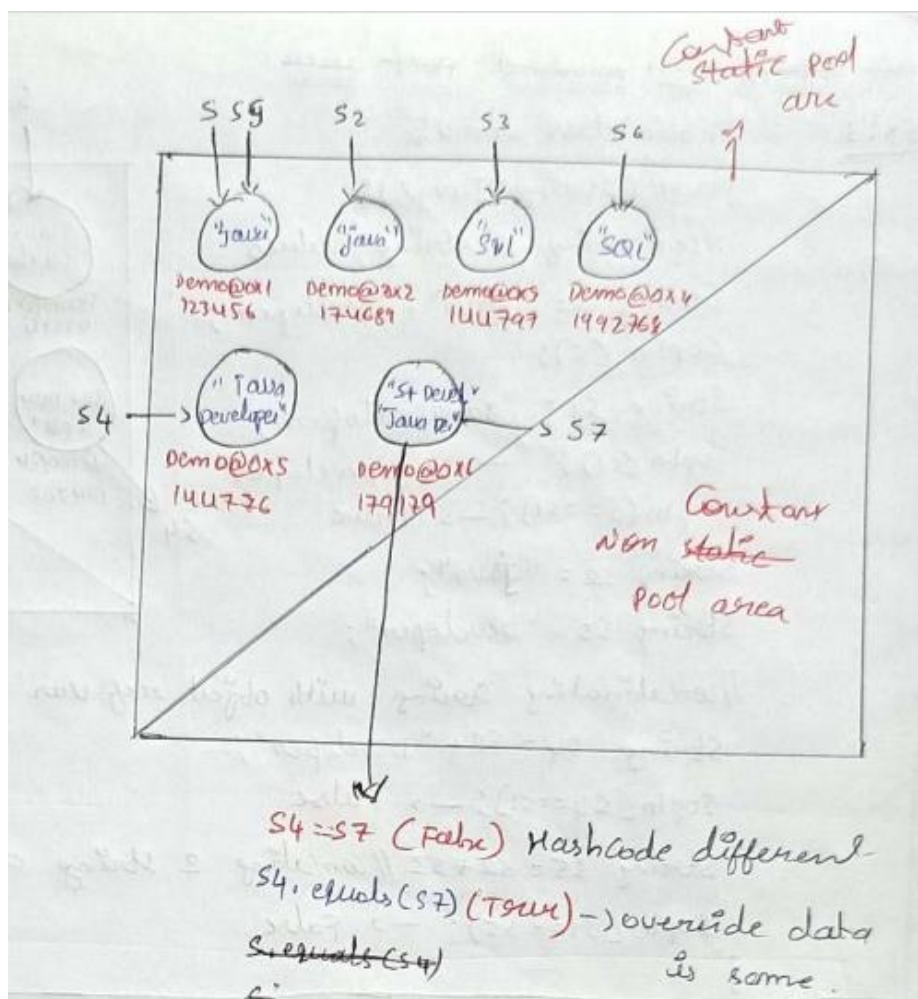 Constant
static pool
are
S S5 S2 S3 S6
"Java" "java" "Sql" "SQL"
Demo@0x1 Demo@0x2 Demo@0x3 Demo@0x4
123456 174689 144797 1992768
S4 "Java
Developer"
"Java De" S7
Demo@0x5 Demo@0x6
144776 179179
Constant
Non static
pool area
S4 == S7 (False) Hashcode different
S4.equals(S7) (True) -> override data
is same.
S.equals(S4)